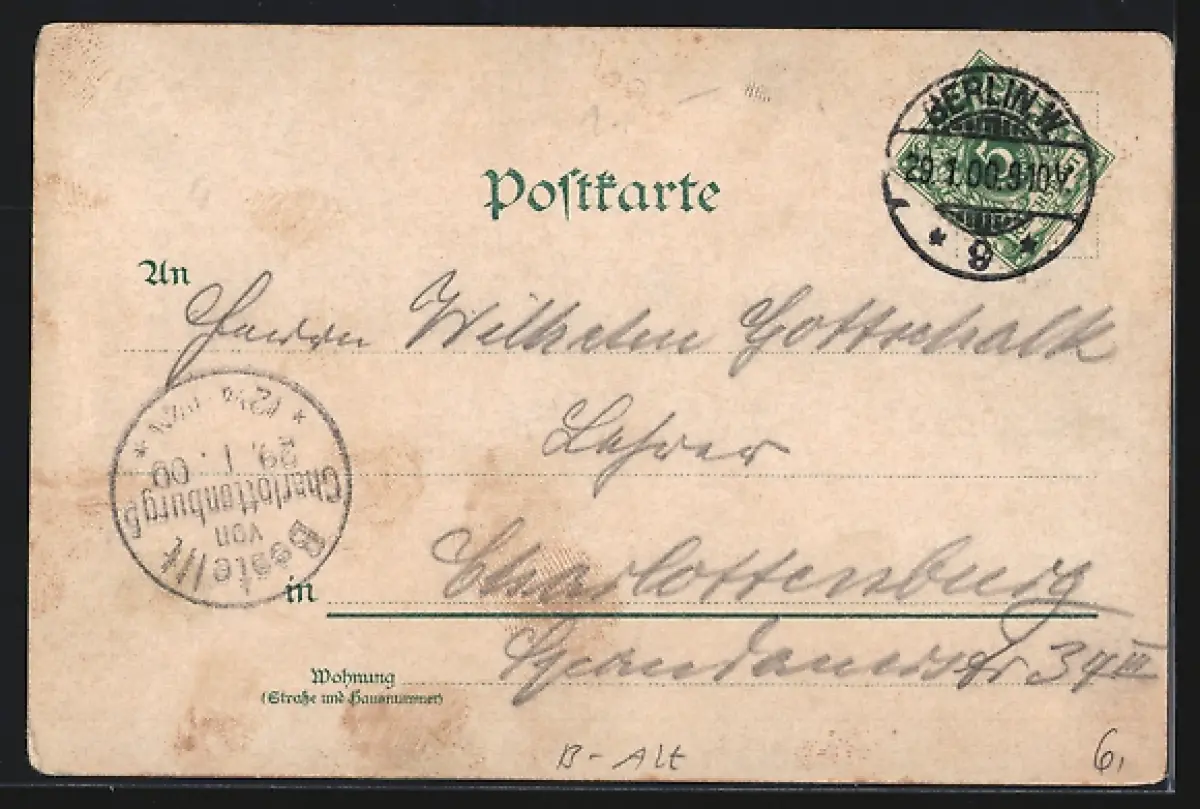 BERLIN.W.
29.1.00.9-10V.
* 8 *
Postkarte
An
Herrn Wilhelm Gottschalk
Lehrer
Bestellt
von
Charlottenburg 5
29. 1. 00
in Charlottenburg
Wohnung
(Straße und Hausnummer)
III
B-Alt
6,